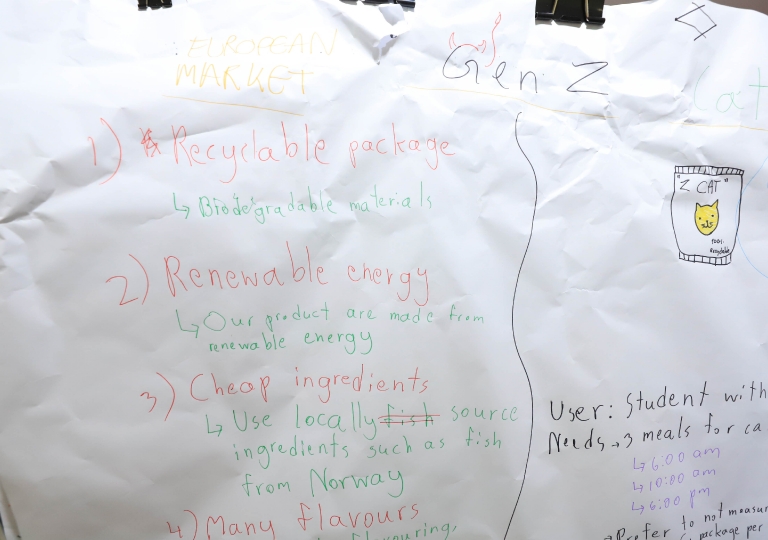 EUROPEAN
MARKET
Gen Z
Cat
1) Recyclable package
↳ Biodegradable materials
2) Renewable energy
↳ Our product are made from
renewable energy
3) Cheap ingredients
↳ Use locally fish source
ingredients such as fish
from Norway
4) Many flavours
"Z CAT"
User: Student with
Needs → 3 meals for ca
↳ 6:00 am
↳ 10:00 am
↳ 6:00 pm
→ Prefer to not measur
package per